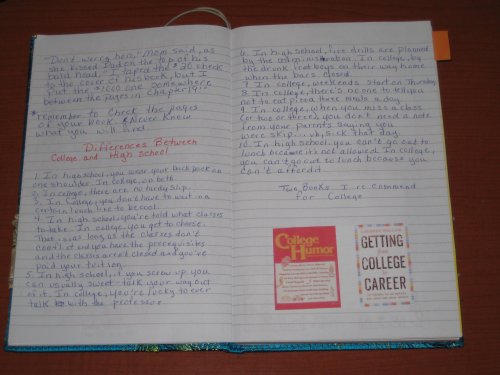 "Don't worry hon," Mom said, as
she kissed Dad on the top of his
bald head, "I taped the $20 check
to the cover of his book, but I
put the $1000 one somewhere
between the pages in Chapter 19!"
*remember to check the pages
of your book & Never Know
what you will find.
Differences Between
College and High School
1. In high school, you wear your back pack on
one shoulder. In college, on both.
2. In college, there are no tardy slips.
3. In College, you don't have to wait in a
certain lunch line to be cool.
4. In high school, you're told what classes
to take. In college, you get to choose.
That is, as long as the classes don't
conflict and you have the prerequisites
and the classes aren't closed and you've
paid your tuition.
5. In high school, if you screw up you
can usually sweet-talk your way out
of it. In college, you're lucky to ever
talk to with the professor.
6. In high school, fire drills are planned
by the administration. In college, by
the drunk frat boys on their way home
when the bars closed.
7. In college, weekends start on Thursday
8. In college, there's no one to tell you
not to eat pizza three meals a day.
9. In college, when you miss a class
(or two or three), you don't need a note
from your parents saying you
were skip...uh, sick that day.
10. In high school, you can't go out to
lunch because it's not allowed. In college,
you can't go out to lunch because you
can't afford it
Two Books I recommend
for College
College
Humor
GETTING
from
COLLEGE
to
CAREER